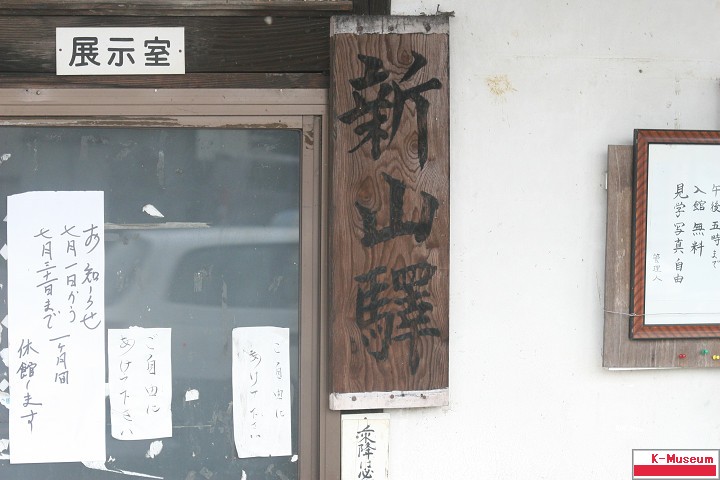 展示室
新山驛
お知らせ
七月一日から
七月三十一日まで
一ヶ月間
休館します
ご自由に
あけて下さい
ご自由に
あけて下さい
乗降
午後五時まで
入館無料
見学写真自由
管理人
K-Museum